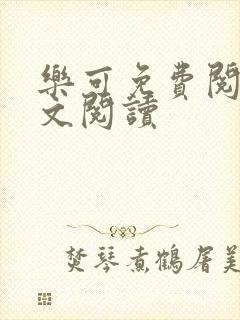 樂可免費閱
文閱讀
焚琴煮鶴屠美